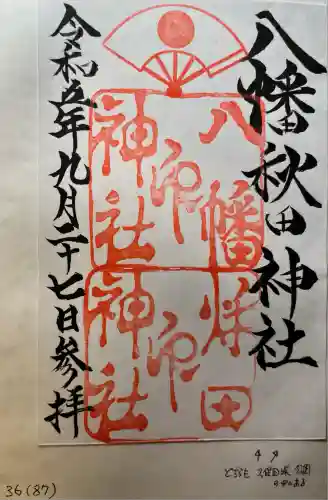 八幡秋田神社
八幡
神社
印
秋田
神社
印
令和五年九月二十七日参拝
36(87)